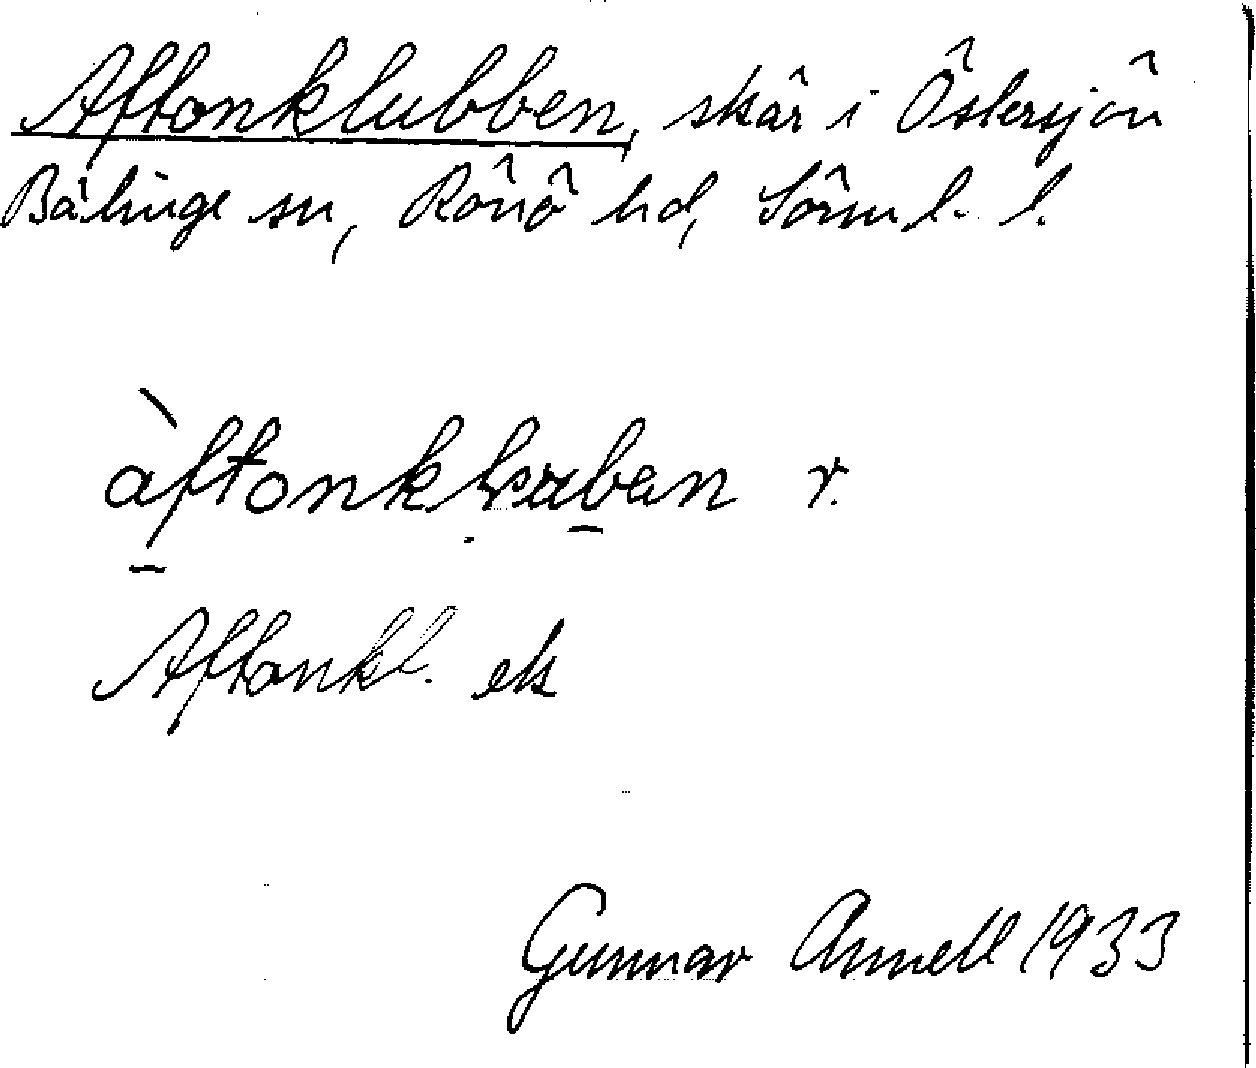 Aftonklubben, skär i Östersjön
Bälinge sn, Rönö hd, Sörml. l.
àftonkl r.
Aftonkl. ek
Gunnar Annell 1933